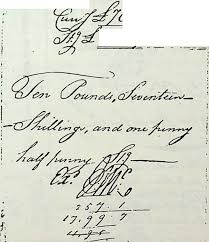 Cur.y £70
Stg £
Ten Pounds, Seventeen
Shillings, and one penny
half penny Stg
Ex.d
257.1
17.99.7